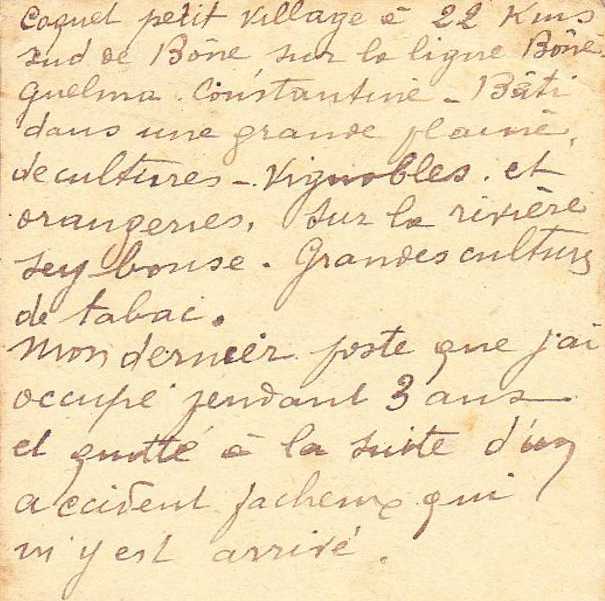 Coquet petit village à 22 Kms
sud de Bône sur la ligne Bône.
Guelma. Constantine - Bâti
dans une grande plaine,
de cultures - Vignobles. et
orangeries, sur la rivière
Sey bouse. Grandes cultures
de tabac.
Mon dernier poste que j'ai
occupé pendant 3 ans
et quitté à la suite d'un
accident facheux qui
m'y est arrivé.